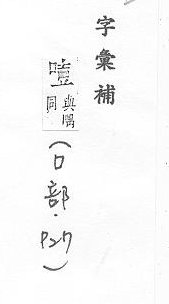 字彙補
噎 與同
(口部·P27)